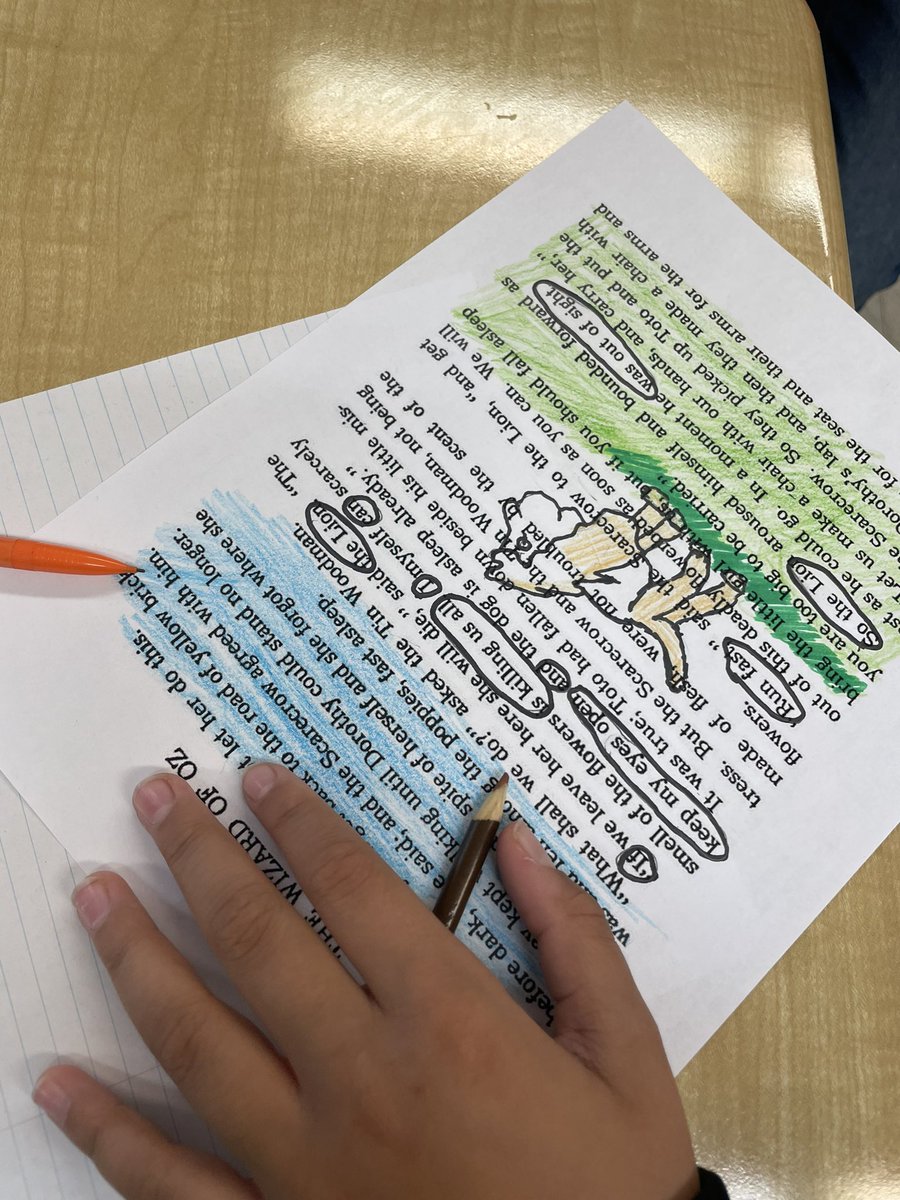 THE WIZARD OF OZ
let her do this.
back to the road of yellow brick
before dark," he said; and the Scarecrow agreed with him.
they kept walking until Dorothy could stand no longer.
spite of herself and she forgot where she
the poppies, fast asleep.
"What shall we do?" asked the Tin Woodman.
"If we leave her here she will die," said the Lion. "The
smell of the flowers is killing us all I myself can scarcely
keep my eyes open and the dog is asleep already."
It was true; Toto had fallen beside his little mis
tress. But the Scarecrow and Woodman, not being
made of were not the scent of the
flowers.
"Run fast said the Scarecrow to the Lion, "and get
out of this deadly as soon as you can. We will
bring the little girl but if you should fall asleep
you are too big be carried."
So the Lio aroused himself and bounded forward as
as he could go. In a moment he was out of sight
Let us make a chair with our hands, and carry her,"
Scarecrow. So they picked up Toto and put the
Dorothy's lap, and then they made a chair with
for the seat and their arms for the arms and